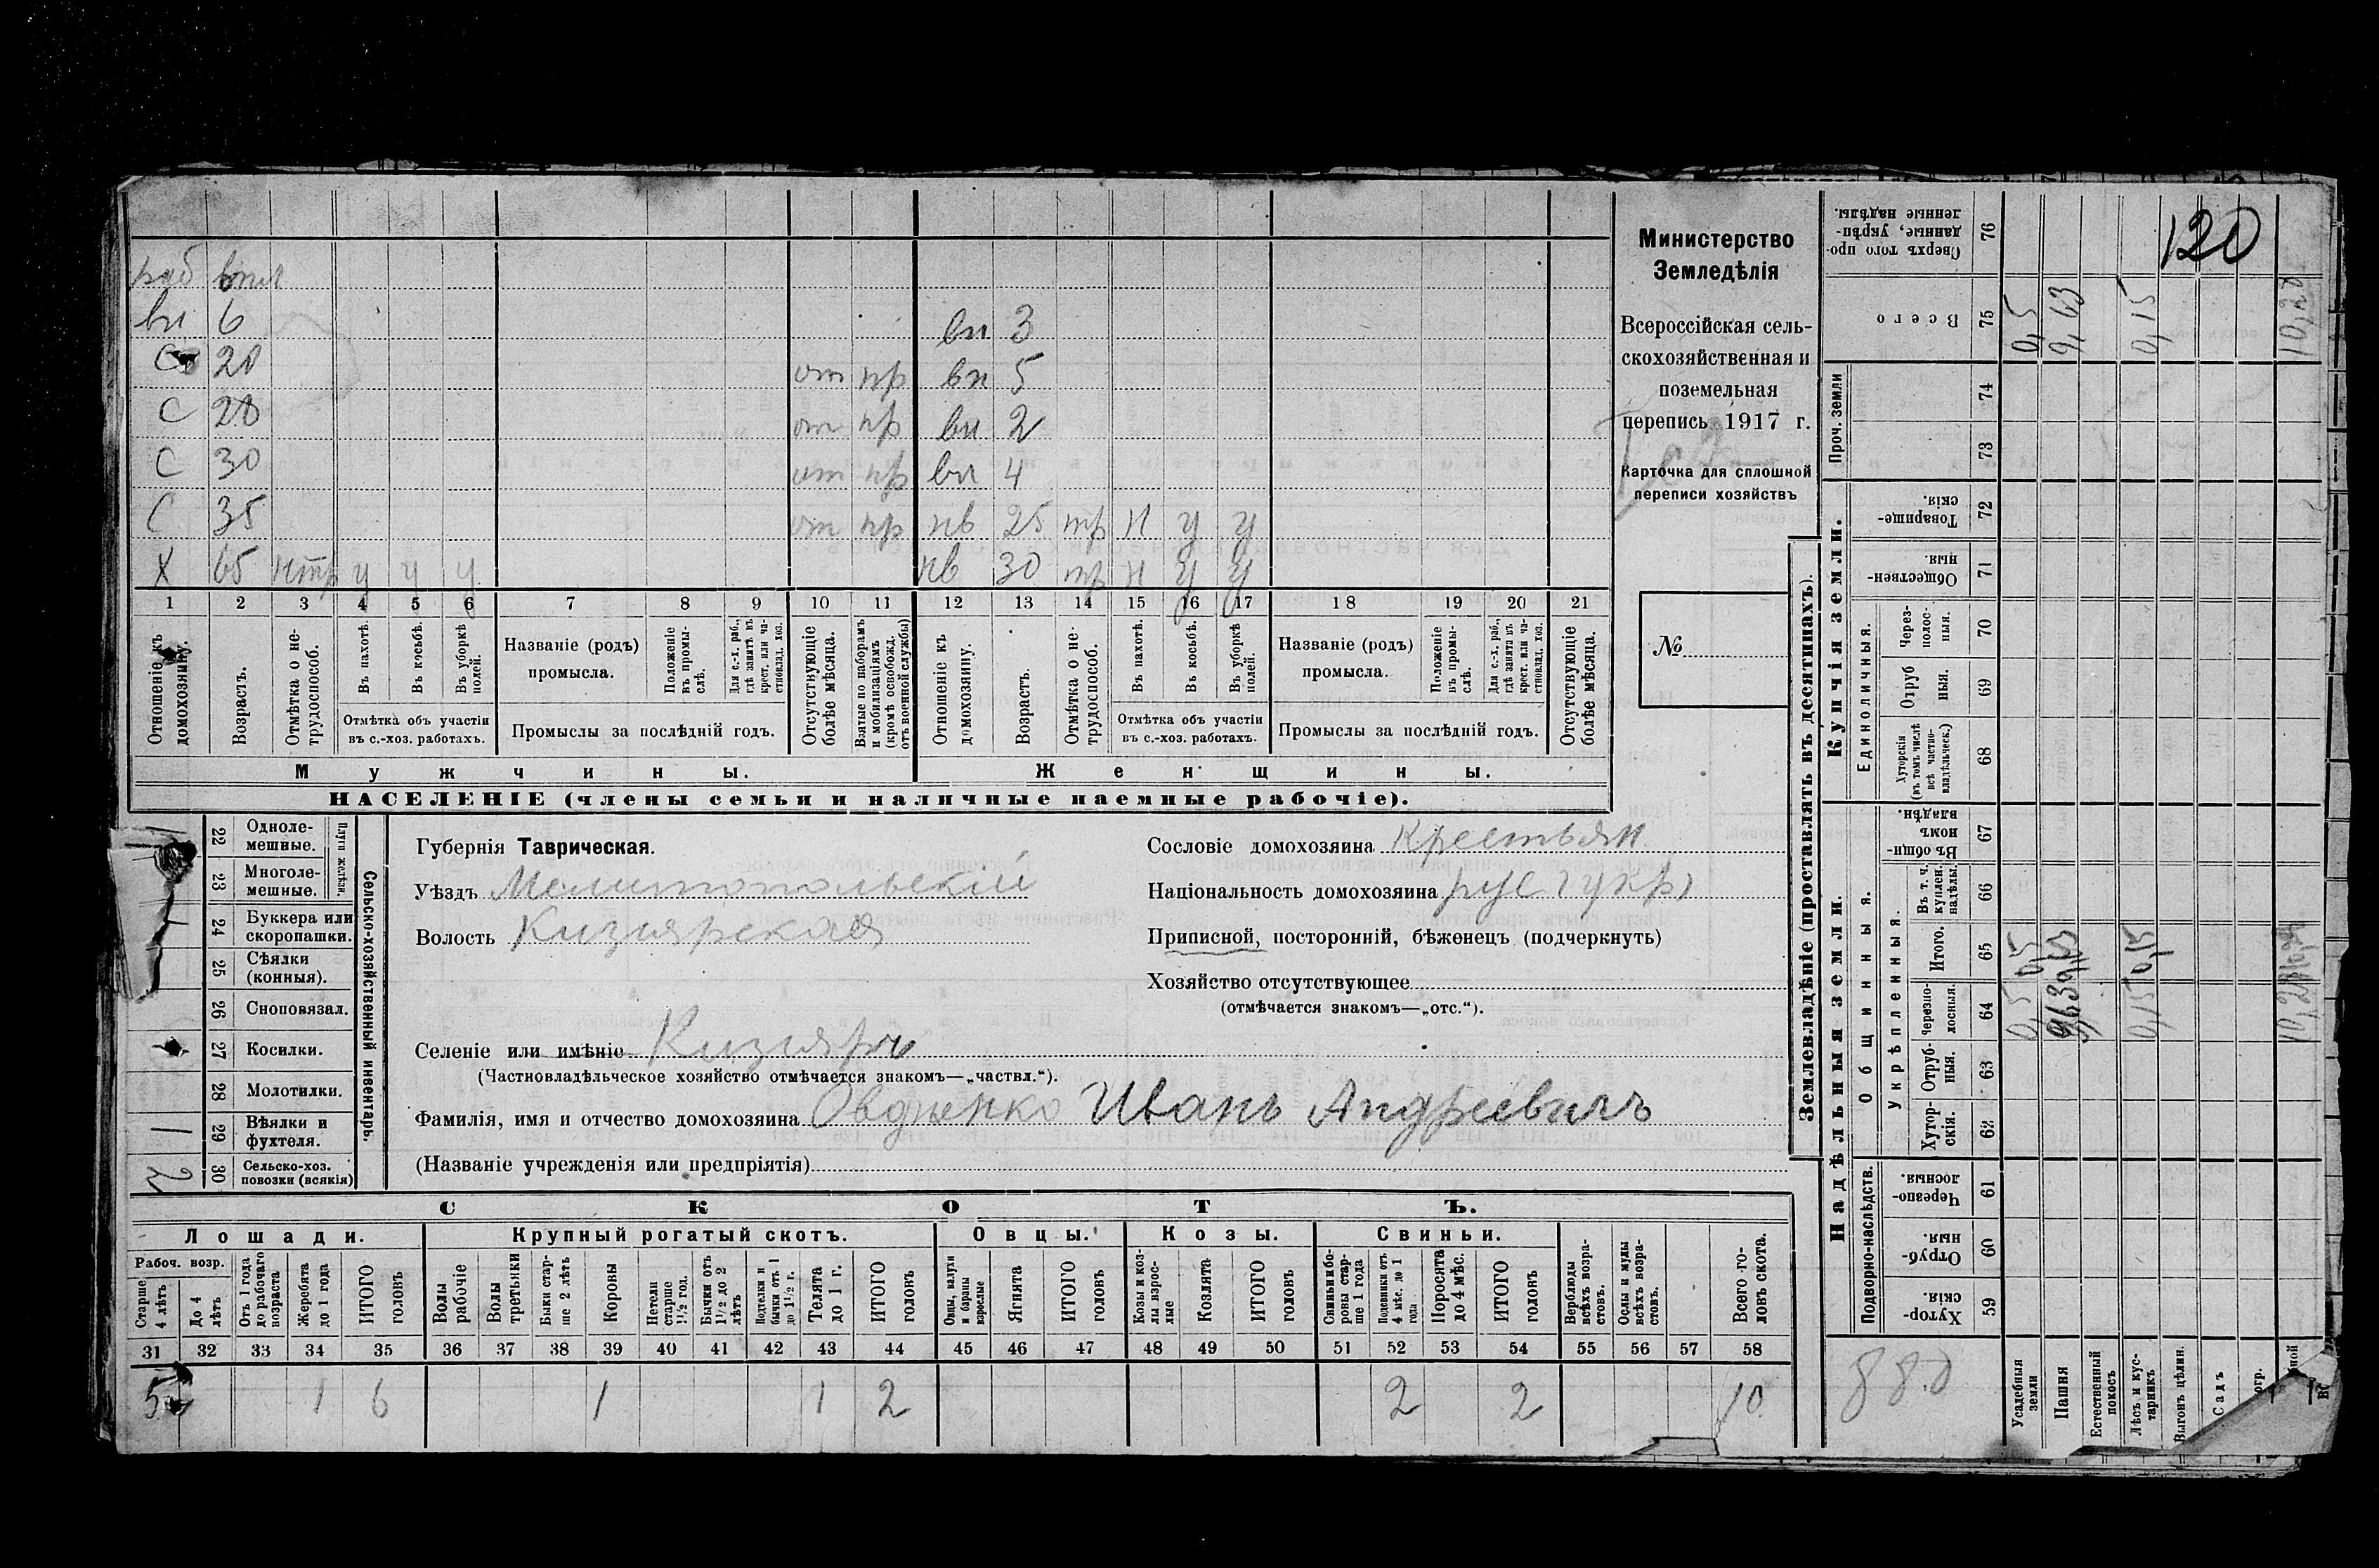 раб
вн 6 вн 3
С 20 от пр вн 5
С 28 от пр вн 2
С 30 от пр вн 4
С 35 от пр нв 25 тр н у у
Х 65 нтр у у у нв 30 тр н у у
1 2 3 4 5 6 7 8 9 10 11 12 13 14 15 16 17 18 19 20 21
Отношеніе къ домохозяину.
Возрастъ.
Отмѣтка о не-трудоспособ.
Въ пахотѣ.
Въ косьбѣ.
Въ уборкѣ полей.
Отмѣтка объ участіи въ с.-хоз. работахъ.
Названіе (родъ) промысла.
Положеніе въ промы-слѣ.
Для с.-х. раб., гдѣ занятъ въ крест. или ча-стновлад. хоз.
Промыслы за послѣдній годъ.
Отсутствующіе болѣе мѣсяца.
Взятые по наборамъ и мобилизаціямъ (кромѣ освобожд. отъ военной службы)
Отношеніе къ домохозяину.
Возрастъ.
Отмѣтка о не-трудоспособ.
Въ пахотѣ.
Въ косьбѣ.
Въ уборкѣ полей.
Отмѣтка объ участіи въ с.-хоз. работахъ.
Названіе (родъ) промысла.
Положеніе въ промы-слѣ.
Для с.-х. раб., гдѣ занята въ крест. или ча-стновлад. хоз.
Промыслы за послѣдній годъ.
Отсутствующіе болѣе мѣсяца.
Мужчины. Женщины.
НАСЕЛЕНІЕ (члены семьи и наличные наемные рабочіе).
Министерство
Земледѣлія
Всероссійская сель-
скохозяйственная и
поземельная
перепись 1917 г.
Карточка для сплошной
переписи хозяйствъ
№
22 Одноле-мешные.
23 Многоле-мешные.
Плуги желѣзн.
1 24 Буккера или скоропашки.
25 Сѣялки (конныя).
26 Сноповязал.
27 Косилки.
28 Молотилки.
1 29 Вѣялки и фухтеля.
2 30 Сельско-хоз. повозки (всякія)
Сельско-хозяйственный инвентарь.
Губернія Таврическая.
Уѣздъ Мелитопольскій
Волость Кизиярская
Селеніе или имѣніе Кизияръ
(Частновладѣльческое хозяйство отмѣчается знакомъ—„частвл.“).
Фамилія, имя и отчество домохозяина Овдіенко Иванъ Андреевичъ
(Названіе учрежденія или предпріятія)
Сословіе домохозяина Крестьян
Національность домохозяина рус (укр)
Приписной, посторонній, бѣженецъ (подчеркнуть)
Хозяйство отсутствующее
(отмѣчается знакомъ—„отс.“).
СКОТЪ.
Лошади. Крупный рогатый скотъ. Овцы. Козы. Свиньи.
Рабоч. возр.
Старше 4 лѣтъ
До 4 лѣтъ
Отъ 1 года до рабочаго возраста
Жеребята до 1 года
ИТОГО головъ
Волы рабочіе
Волы третьяки
Быки стар-ше 2 лѣтъ
Коровы
Нетели старше 1½ год.
Бычки отъ 1½ до 2 лѣтъ
Подтелки и бычки отъ 1 до 1½ г.
Телята до 1 г.
ИТОГО головъ
Овцы, валухи и бараны взрослые
Ягнята
ИТОГО головъ
Козы и коз-лы взрос-лые
Козлята
ИТОГО головъ
Свиньи и бо-ровы стар-ше 1 года
Подсвинки отъ 4 мѣс. до 1 года
Поросята до 4 мѣс.
ИТОГО головъ
Верблюды всѣхъ возра-стовъ.
Ослы и мулы всѣхъ возра-стовъ.
Всего го-ловъ скота.
31 32 33 34 35 36 37 38 39 40 41 42 43 44 45 46 47 48 49 50 51 52 53 54 55 56 57 58
5 1 6 1 1 2 2 2 10
Землевладѣніе (проставлять въ десятинахъ).
120
Сверхъ того про-данные, укрѣп-ленные надѣлы. 76
Всего 75 0,5 9,63 0,15 10,28
Проч. земли 74 73
Купчія земли.
Товарище-скія. 72
Обществен-ныя. 71
Единоличныя.
Через-полос-ныя. 70
Отруб ныя. 69
Хуторскія (въ томъ числѣ всѣ частно-владѣльческ.) 68
Надѣльныя земли.
Общинныя.
Въ общи-номъ владѣн. 67
Укрѣпленныя.
Въ т. ч. куплен. надѣлы. 66
Итого. 65 0,5 9,63 0,15
Черезпо-лосныя. 64 0,5 9,63 0,15 10,28
Отруб-ныя. 63
Хутор-скія. 62
Подворно-наслѣдств.
Черезпо-лосныя. 61
Отруб-ныя. 60
Хутор-скія. 59
Усадебныя земли
Пашня
Естественный покосъ
Лѣсъ и кус-тарникъ
Выгонъ цѣлин.
Садъ